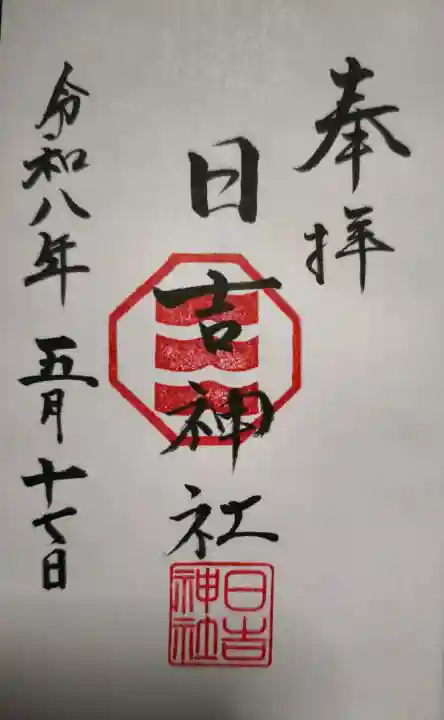 奉拝
日吉神社
日吉神社
令和八年五月十七日